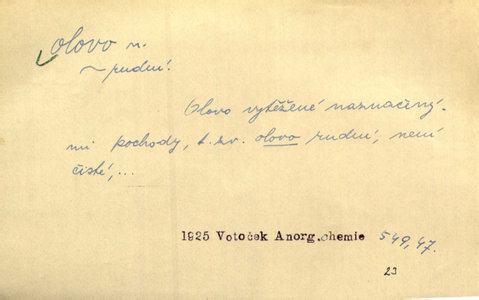 olovo n.
~ rudní.
Olovo vytěžené naznačený-
mi pochody, t. zv. olovo rudní, není
čisté,...
1925 Votoček Anorg.chemie 549,47.
23